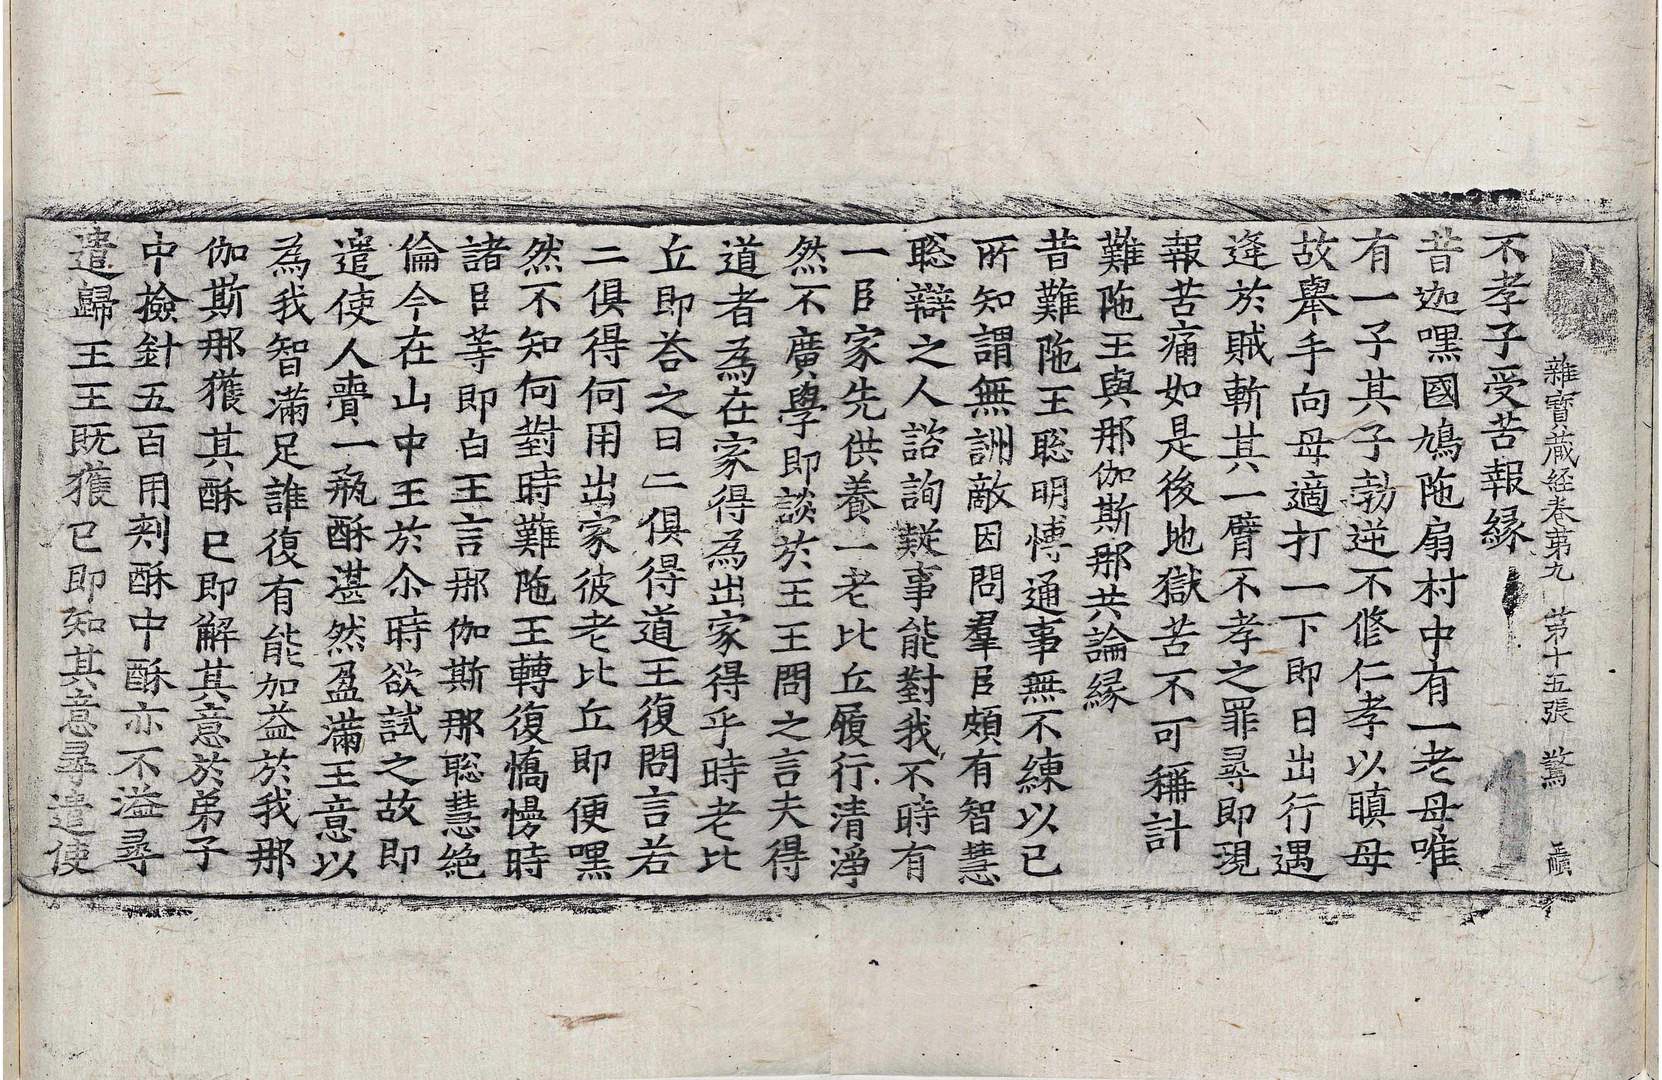 雜寳蔵経卷第九 第十五張 驚
不孝子受苦報縁
昔迦嘿國鳩陁扇村中有一老母唯
有一子其子勃逆不修仁孝以瞋母
故舉手向母適打一下即日出行遇
逢於賊斬其一臂不孝之罪尋即現
報苦痛如是後地獄苦不可稱計
難陁王與那伽斯那共論縁
昔難陁王聡明博通事無不練以已
所知謂無詶敵因問羣臣頗有智慧
聡辯之人諮詢疑事能對我不時有
一臣家先供養一老比丘履行清淨
然不廣學即談於王王問之言夫得
道者為在家得為出家得乎時老比
丘即荅之曰二俱得道王復問言若
二俱得何用出家彼老比丘即便嘿
然不知何對時難陁王轉復憍慢時
諸臣等即白王言那伽斯那聡慧絶
倫今在山中王於尒時欲試之故即
遣使人賷一瓶酥湛然盈滿王意以
為我智滿足誰復有能加益於我那
伽斯那獲其酥已即解其意於弟子
中撿針五百用剌酥中酥亦不溢尋
遣歸王王既獲已即知其意尋遣使